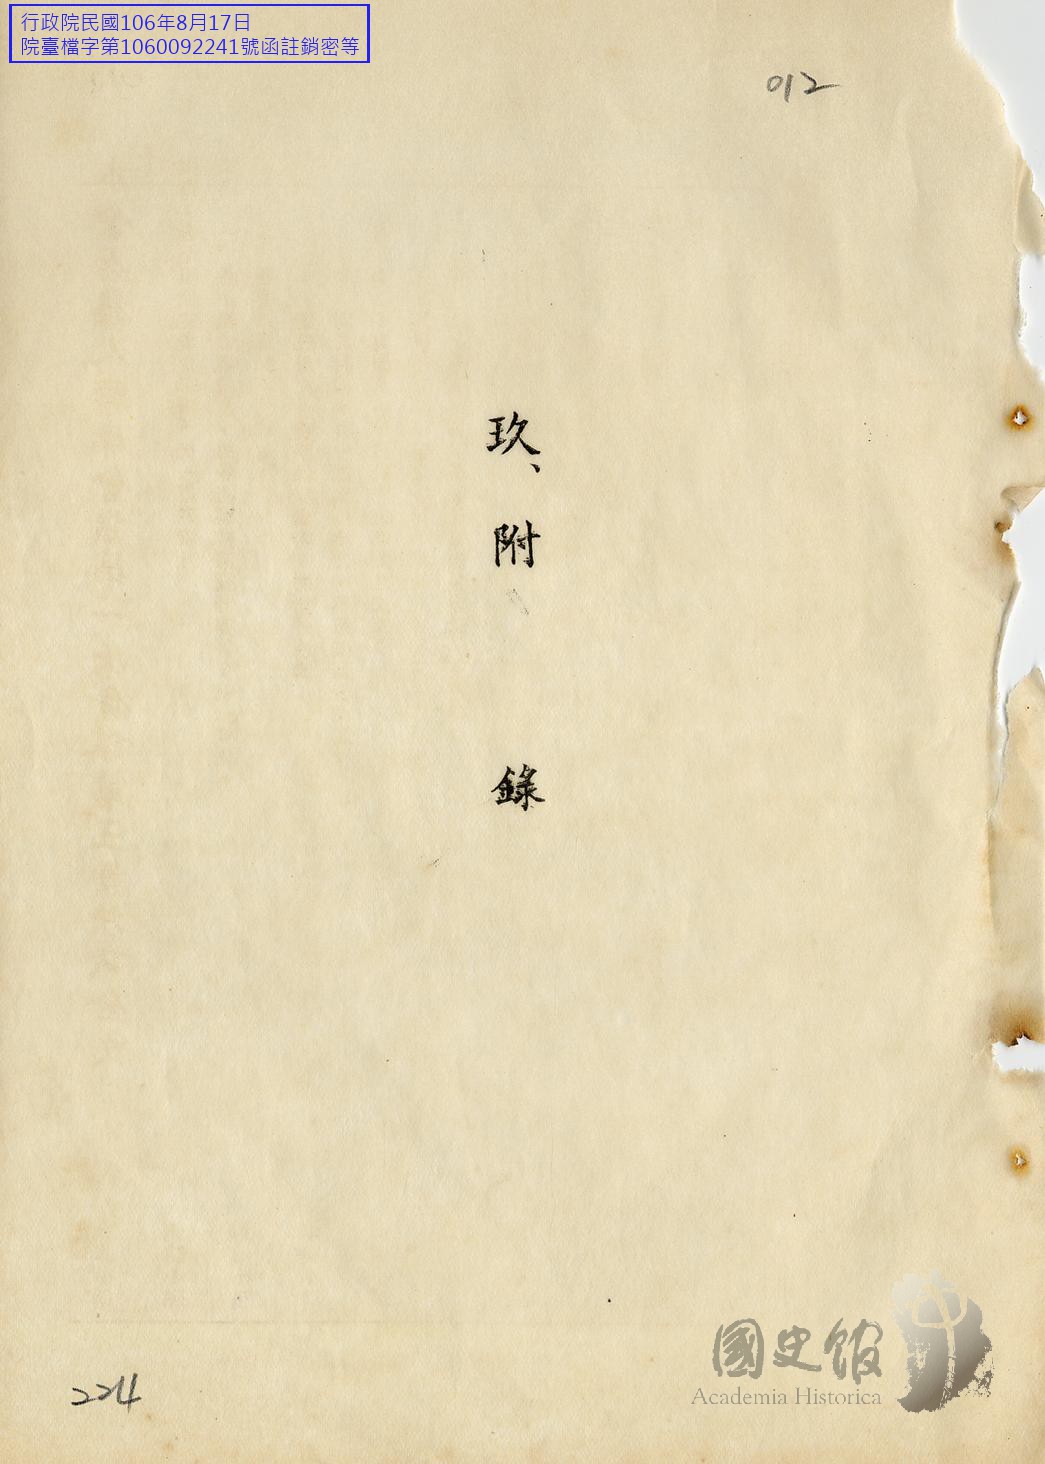 行政院民國106年8月17日
院臺檔字第1060092241號函註銷密等
012
玖、附錄
224
國史館
Academia Historica